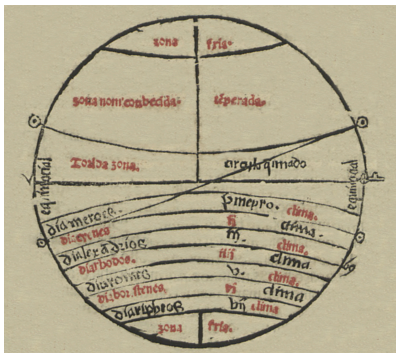 zona fria.
zona nom conhecida. tẽperada.
Torrida zona. circulo q̃imado
equinocial
equinocial
diameroes. primepro. clima.
diesyenes ij clima.
dialexãdrios iij. clima.
diarhodos. iiij clima
diaromes v. clima.
diaboristenes. vi clima
diaripheos vij clima
zona fria.